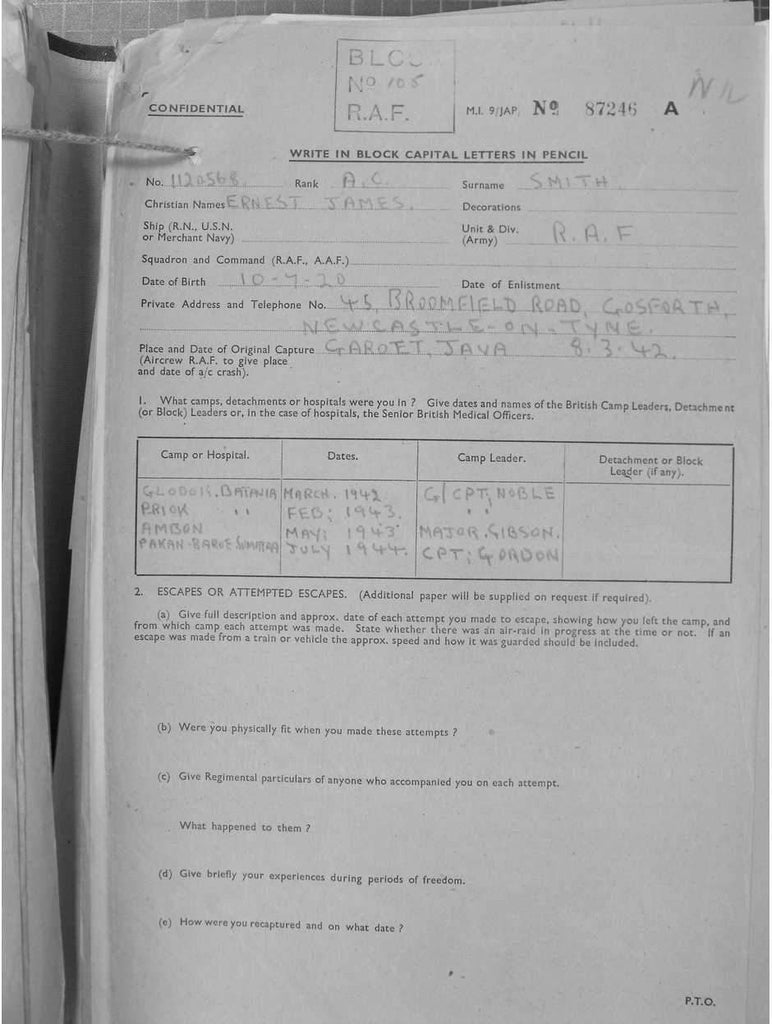 BLCC
No 105
R.A.F.
NIL
CONFIDENTIAL
M.I. 9/JAP. No 87246 A
WRITE IN BLOCK CAPITAL LETTERS IN PENCIL
No. 1120568 Rank A.C. Surname SMITH.
Christian Names ERNEST JAMES. Decorations
Ship (R.N., U.S.N. or Merchant Navy) Unit & Div. (Army) R.A.F
Squadron and Command (R.A.F., A.A.F.)
Date of Birth 10-7-20 Date of Enlistment
Private Address and Telephone No. 45, BROOMFIELD ROAD, GOSFORTH,
NEWCASTLE-ON-TYNE.
Place and Date of Original Capture GAROET, JAVA 8.3.42.
(Aircrew R.A.F. to give place
and date of a/c crash).
1. What camps, detachments or hospitals were you in ? Give dates and names of the British Camp Leaders, Detachment
(or Block) Leaders or, in the case of hospitals, the Senior British Medical Officers.
Camp or Hospital. Dates. Camp Leader. Detachment or Block Leader (if any).
GLODOK. BATAVIA MARCH. 1942 G/CPT; NOBLE
PRIOK " FEB; 1943. " "
AMBON MAY; 1943 MAJOR. GIBSON.
PAKAN-BAROE SUMATRA JULY 1944. CPT; GORDON
2. ESCAPES OR ATTEMPTED ESCAPES. (Additional paper will be supplied on request if required).
(a) Give full description and approx. date of each attempt you made to escape, showing how you left the camp, and
from which camp each attempt was made. State whether there was an air-raid in progress at the time or not. If an
escape was made from a train or vehicle the approx. speed and how it was guarded should be included.
(b) Were you physically fit when you made these attempts ?
(c) Give Regimental particulars of anyone who accompanied you on each attempt.
What happened to them ?
(d) Give briefly your experiences during periods of freedom.
(e) How were you recaptured and on what date ?
P.T.O.